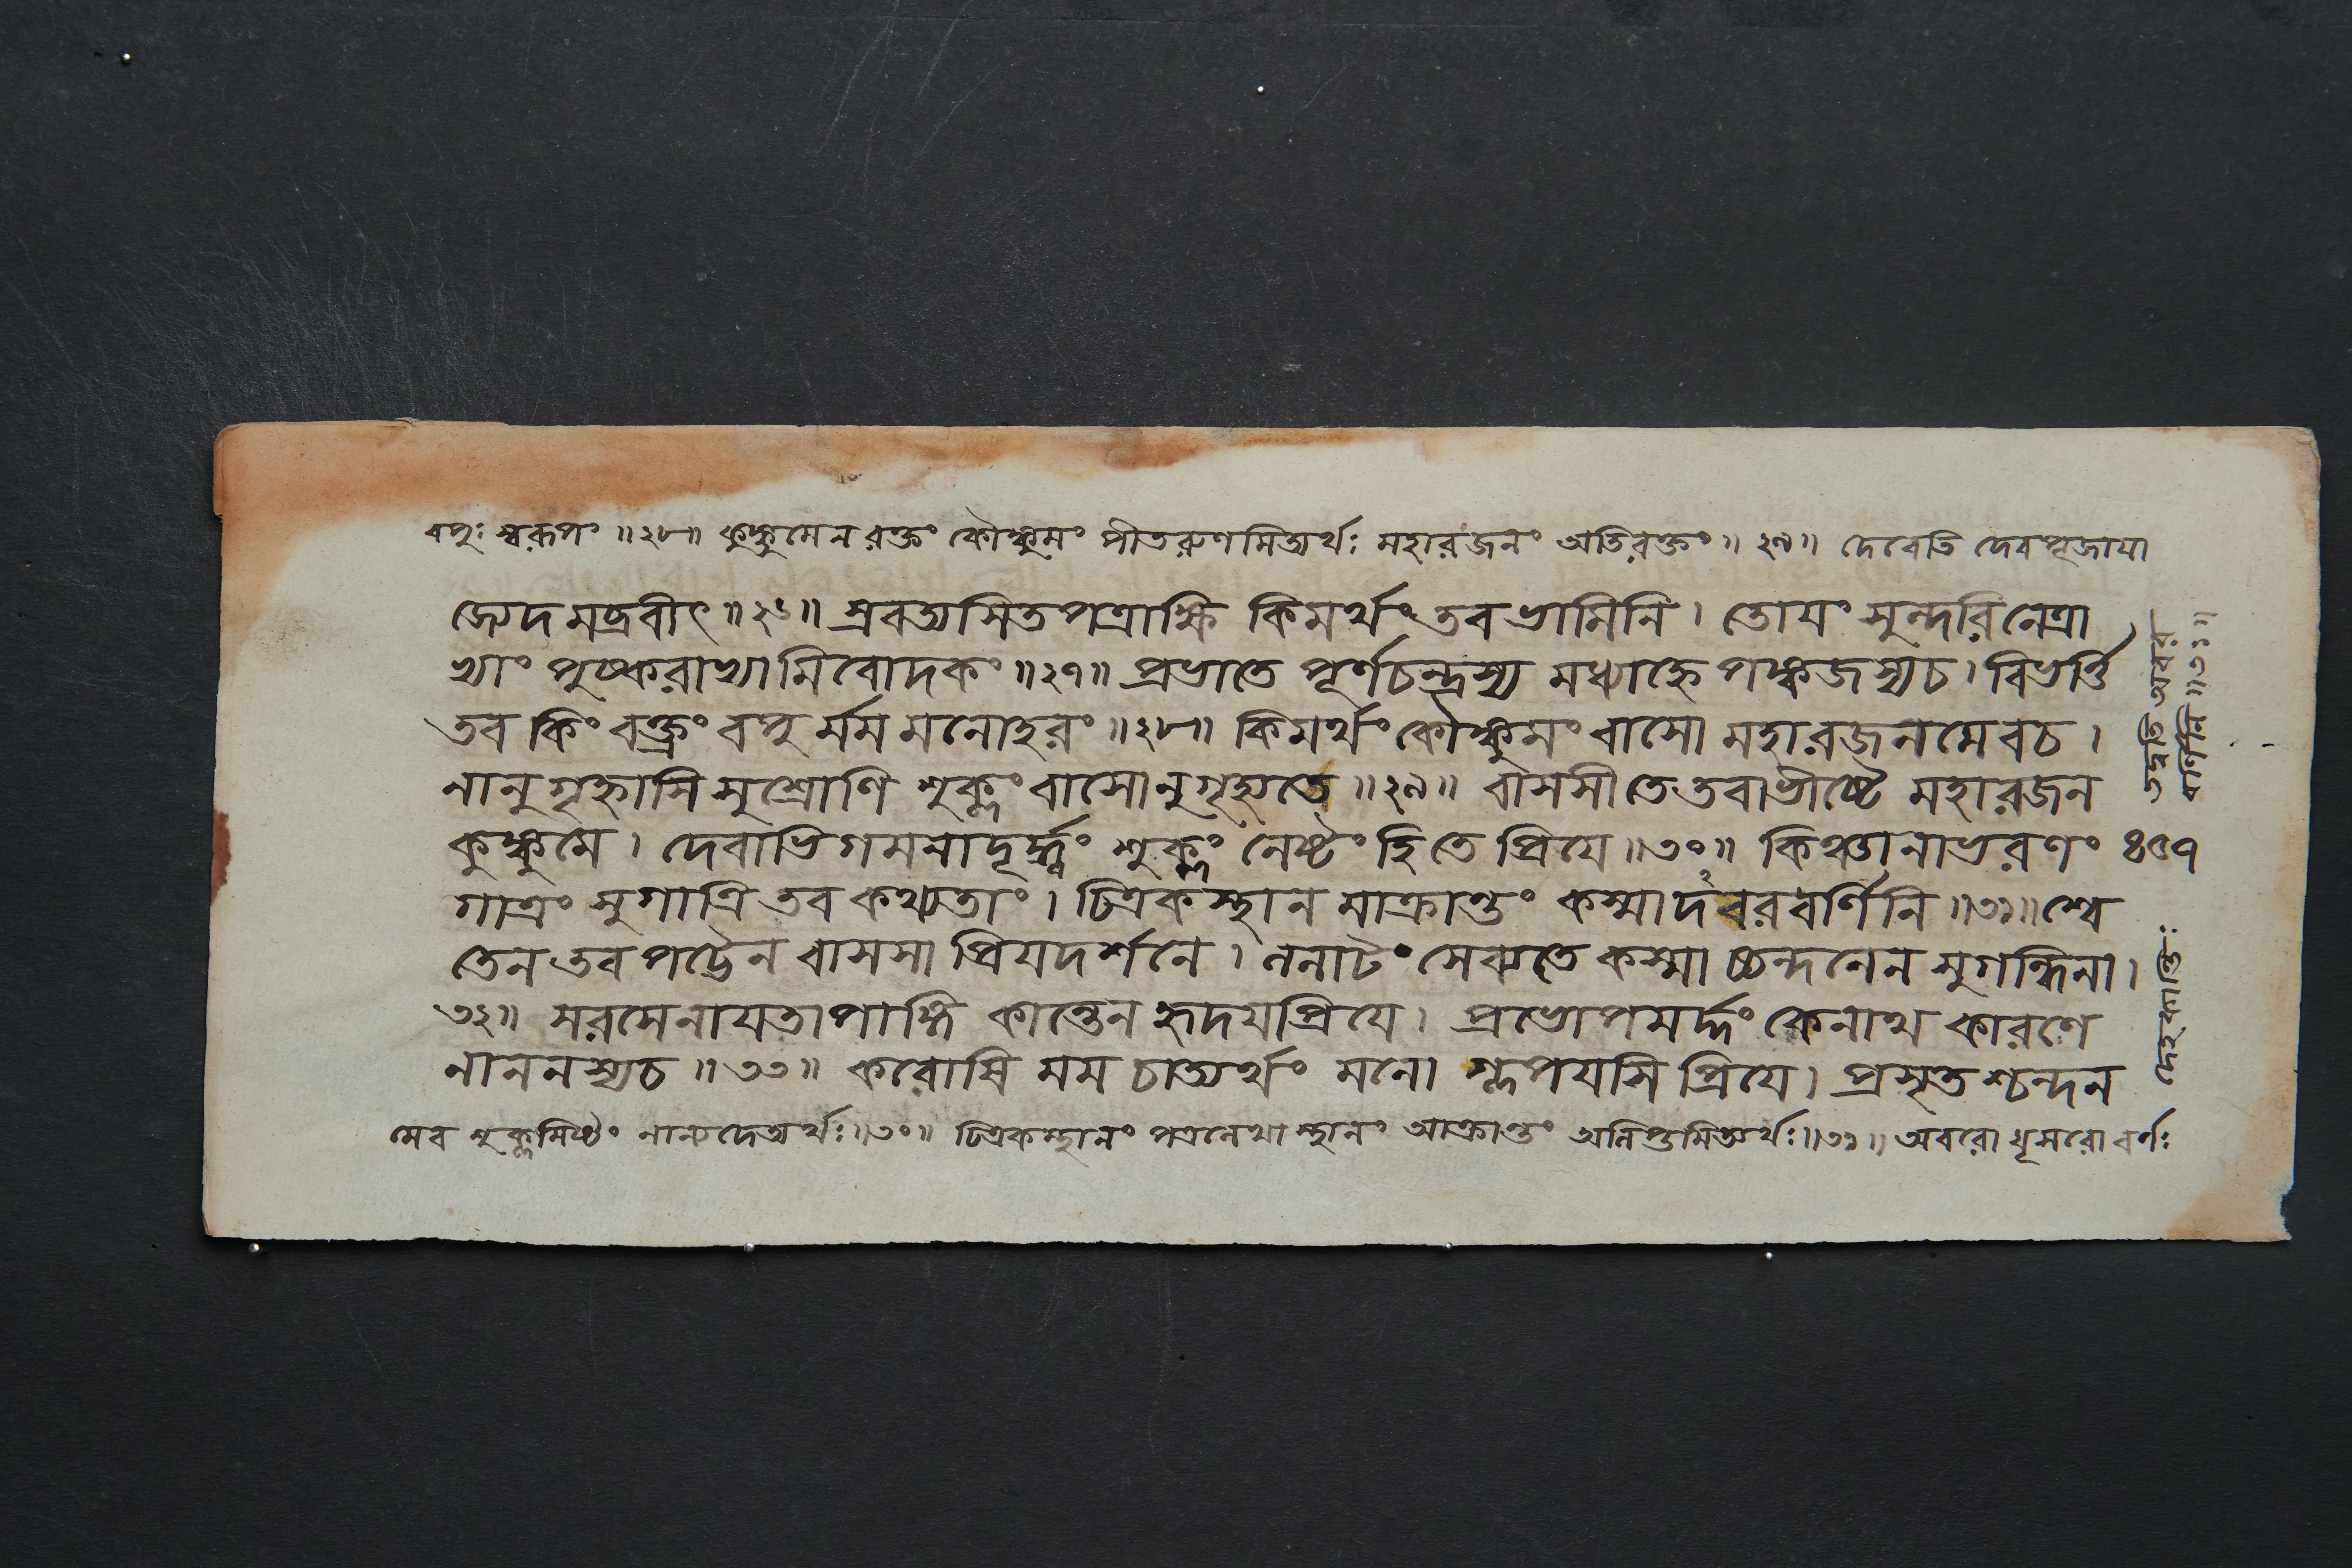 বপুঃ স্বরূপং ॥২৮॥ কুঙ্কুমেন রক্তং কৌঙ্কুমং পীতরুণমিত্যর্থঃ মহারজনং অতিরক্তং ॥ ২৯॥ দেবেতি দেবপূজায়া
মব্রবীৎ ॥২৬॥ স্রবত্যসিতপত্রাক্ষি কিমর্থং তব ভামিনি । তোযং সুন্দরি নেত্রা
ভ্যাং পুষ্করাভ্যামিবোদকং ॥২৭॥ প্রভাতে পূর্ণচন্দ্রস্য মধ্যাহ্নে পঙ্কজস্যচ । বিভর্ত্তি
তব কিং বক্ত্রং বপুর্মম মনোহরং ॥২৮॥ কিমর্থং কৌঙ্কুমং বাসো মহারজনমেবচ ।
নানুগৃহ্নাসি সুশ্রোণি শুক্লং বাসোনুগৃহ্যতে ॥২৯॥ বাসসী তে তবাভীষ্টে মহারজন
কুঙ্কুমে । দেবাভিগমনাদূর্দ্ধ্বং শুক্লং নেষ্টং হি তে প্রিযে ॥৩০॥ কিঞ্চানাভরণং ৪৫৭
গাত্রং সুগাত্রি তব কথ্যতাং । চিত্রকস্থানমাক্রান্তং কস্মাদবরবর্ণিনি ॥৩১॥ শ্বে
তেন তব পট্টেন বাসসা প্রিযদর্শনে । ললাটং সেব্যতে কস্মাচ্চন্দনেন সুগন্ধিনা ।
৩২॥ সরসেনাযতাপাঙ্গি কান্তেন হৃদযপ্রিযে । প্রভোপমর্দ্দং কেনাত্ম কারণে
নাননস্যচ ॥ ৩৩॥ করোষি মম চাত্যর্থং মনো গ্লপযসি প্রিযে । প্রসৃত শ্চন্দন
মেব শুক্লমিষ্টং নান্যদেত্যর্থঃ ॥৩০॥ চিত্রকস্থানং পত্রলেখাস্থানং আক্রান্তং অলিপ্তমিত্যর্থঃ ॥৩১॥ অবরো ধূসরো বর্ণঃ
তদ্বতি অবর
বর্ণিনি ॥৩১॥
দেহকান্তিঃ